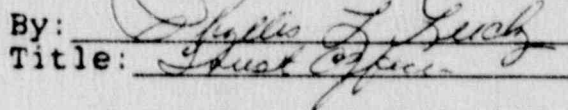 By: Phyllis L
Title: Trust Officer